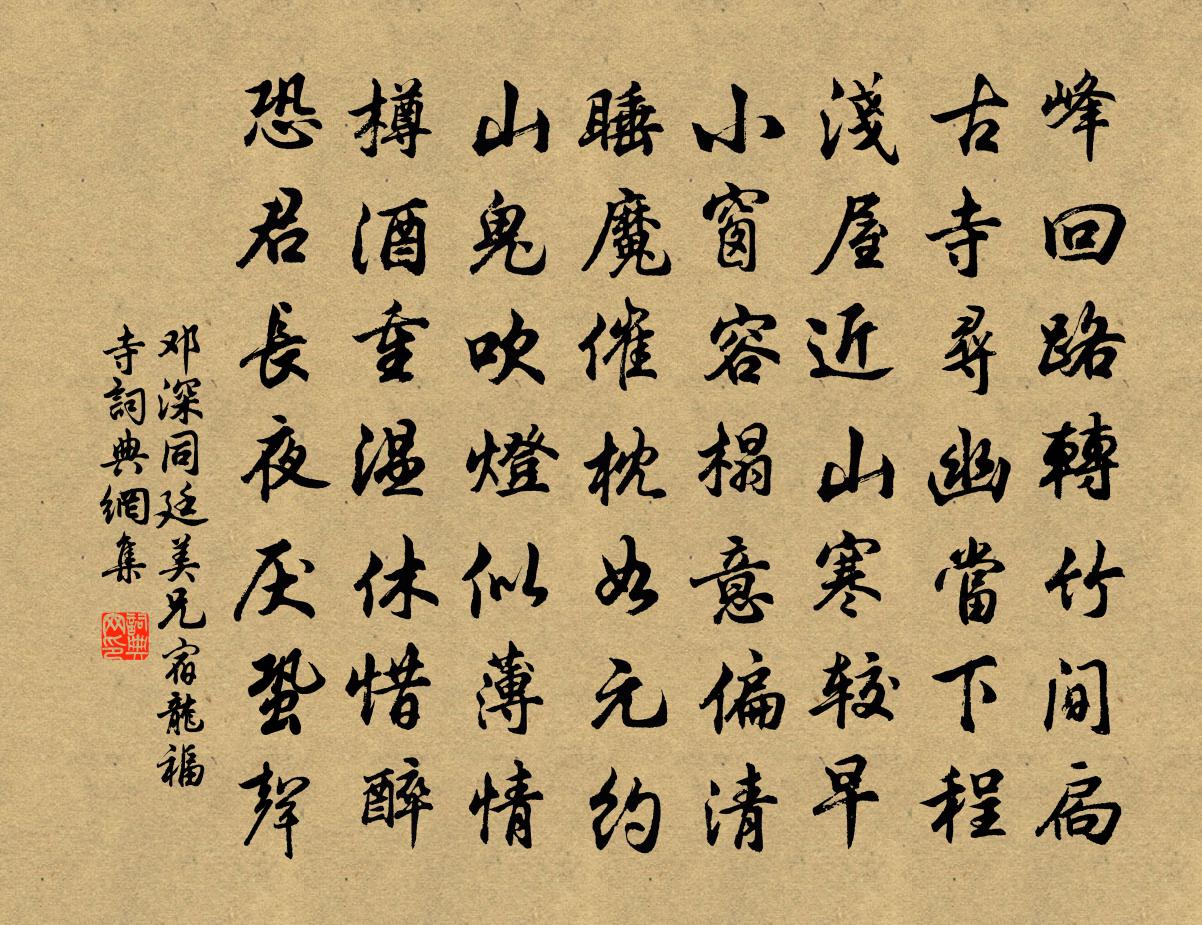 峰回路轉竹間扃
古寺尋幽當下程
淺屋近山寒較早
小窗容榻意偏清
睡魔催枕如元約
山鬼吹燈似薄情
樽酒重温休惜醉
恐君長夜厌蛩聲
邓深同廷美兄宿龍福
寺詞典網集
詞典网印